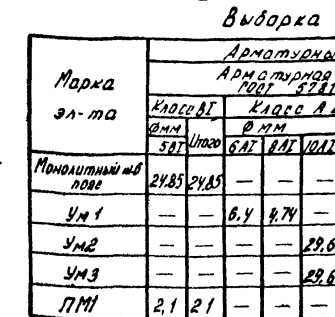 Выборка
Арматурны
Марка эл-та
Арматурная
ГОСТ 5781
Класс ВI
Класс А
Фмм
Ф мм
5ВI Итого 6АI 8АI 10АI
Монолитный ж.б пояс 24.85 24.85 — — —
Ум 1 — — 6,4 4,74 —
Ум2 — — — — 29,6
Ум3 — — — — 29,6
ПМ1 2,1 2 1 — — —